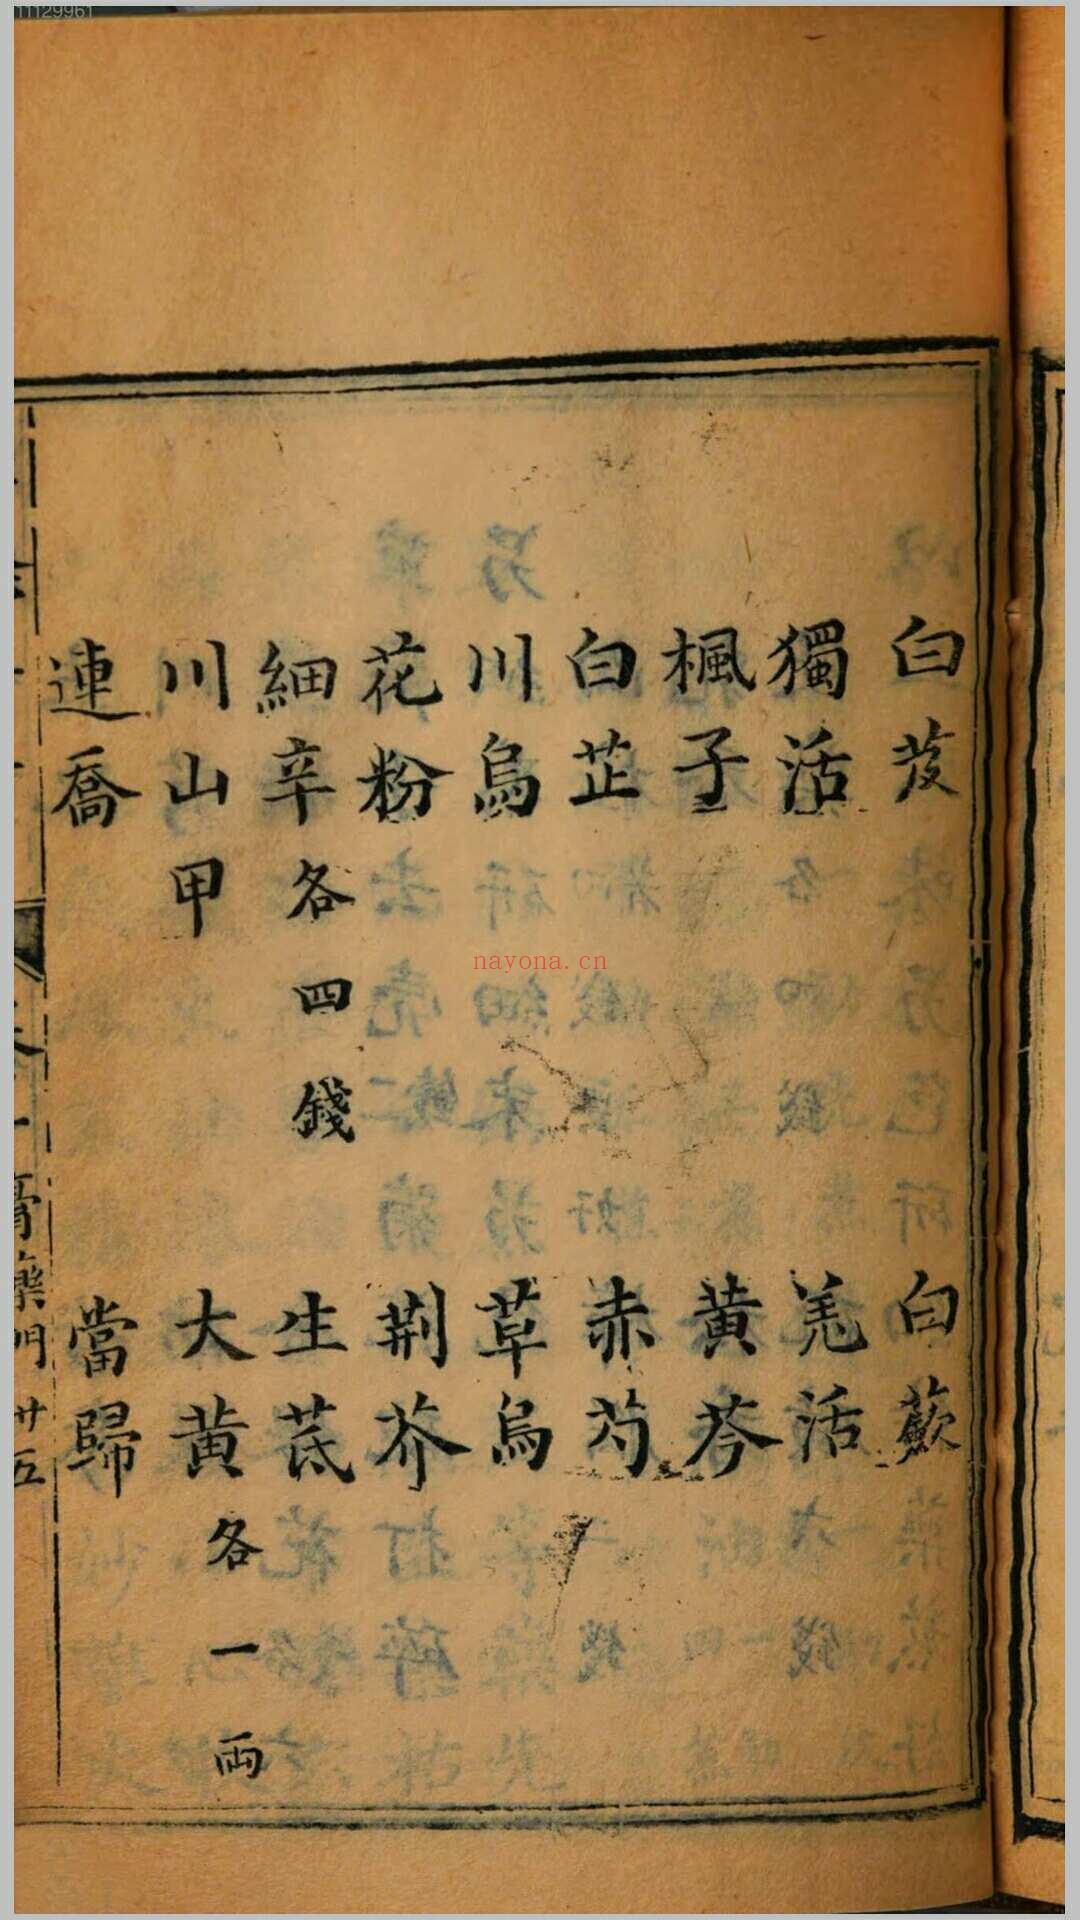 11129961
白芨 白蘞
獨活 羌活
楓子 黃芩
白芷 赤芍
川烏 草烏
花粉 荆芥
細辛各四錢 生芪
川山甲 大黃各一両
連喬 當歸
膏藥門 廿五
nayona.cn